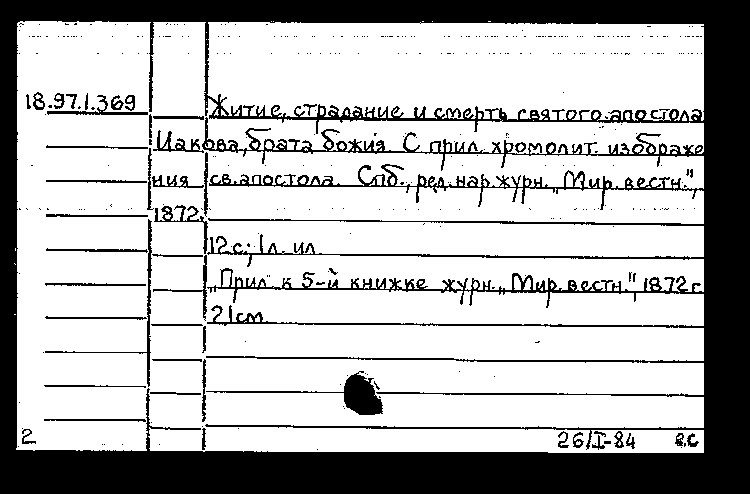 18.97.1.369 Житие, страдание и смерть святого апостола
Иакова, брата божия. С прил. хромолит. изображе
ния св. апостола. Спб., ред. нар. журн. „Мир. вестн.",
1872.
12с.; 1л. ил.
„Прил. к 5-й книжке журн. „Мир. вестн.", 1872 г.
21см.
2 26/I-84